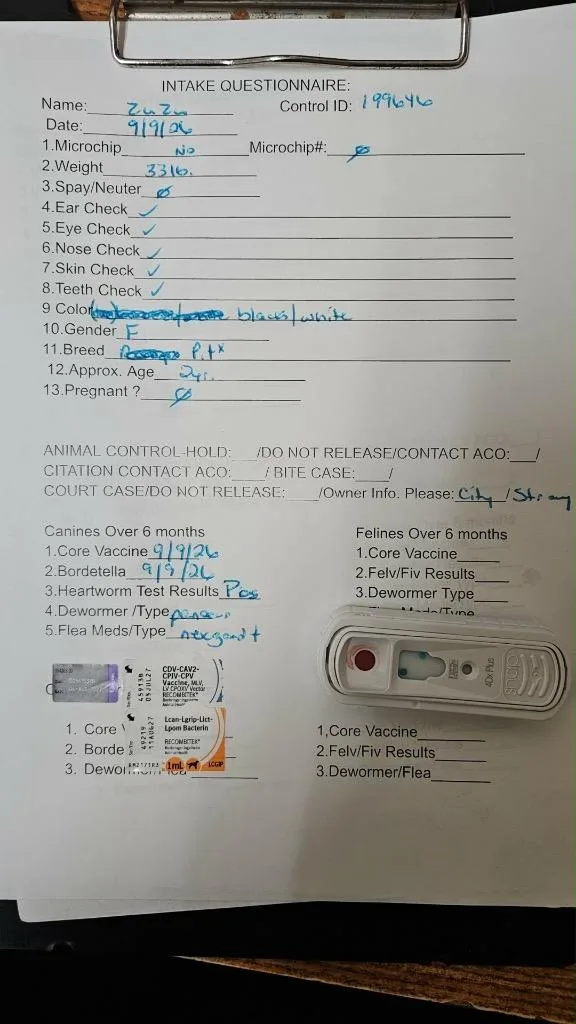 INTAKE QUESTIONNAIRE:
Name: ZuZu Control ID: 199646
Date: 9/9/26
1.Microchip No Microchip#: ∅
2.Weight 33lb.
3.Spay/Neuter ∅
4.Ear Check ✓
5.Eye Check ✓
6.Nose Check ✓
7.Skin Check ✓
8.Teeth Check ✓
9 Color black/white
10.Gender F
11.Breed Pit x
12.Approx. Age 2yr.
13.Pregnant ? ∅
ANIMAL CONTROL-HOLD:___/DO NOT RELEASE/CONTACT ACO:___/
CITATION CONTACT ACO:____/ BITE CASE:____/
COURT CASE/DO NOT RELEASE:____/Owner Info. Please: City / Stray
Canines Over 6 months
1.Core Vaccine 9/9/26
2.Bordetella 9/9/26
3.Heartworm Test Results Pos
4.Dewormer /Type
5.Flea Meds/Type nexgard +
Felines Over 6 months
1.Core Vaccine
2.Felv/Fiv Results
3.Dewormer Type
CDV-CAV2-
CPIV-CPV
Vaccine, MLV,
LV CPOXV Vector
RECOMBITEK®
459138
05JUL27
Lcan-Lgrip-Lict-
Lpom Bacterin
RECOMBITEK®
49219
11AUG27
1mL LCGIP
1. Core
2. Borde
3. Dewor
1,Core Vaccine
2.Felv/Fiv Results
3.Dewormer/Flea
4Dx Plus
SNAP